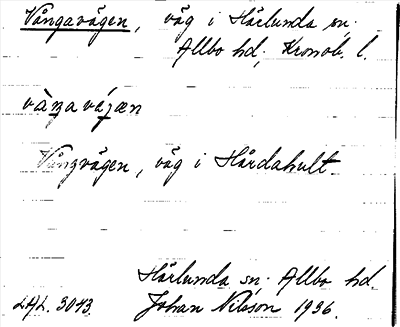 Vångavägen, väg i Härlunda sn.
Allbo hd, Kronob. l.
vàŋavä́jæn
Vångvägen, väg i Hårdahult
Härlunda sn. Allbo hd.
LAL. 3043. Johan Nilsson 1936.